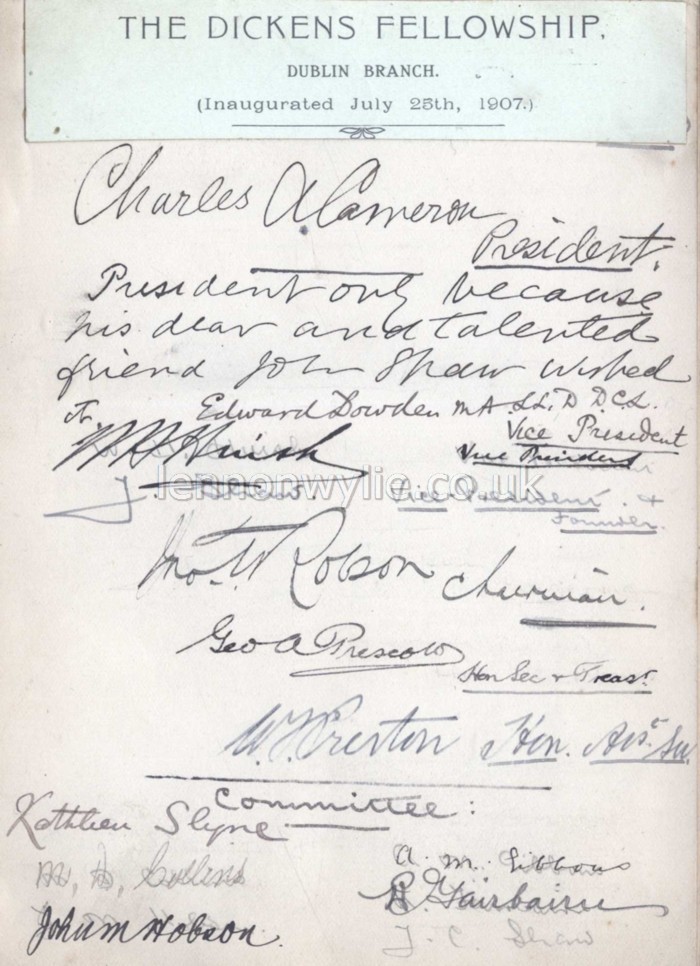 THE DICKENS FELLOWSHIP,
DUBLIN BRANCH.
(Inaugurated July 25th, 1907.)
Charles A Cameron
President.
President only because
his dear and talented
friend John Shaw wished
it.
Edward Dowden MA LL.D D.C.L.
Vice President
Vice President
J. Shaw Vice-President &
Founder.
lennonwylie.co.uk
Jno. W Robson Chairman.
Geo A Prescott
Hon Sec & Treasr.
W. J. Preston Hon. Asst. Sec.
Committee:
Kathleen Slyne
W. B. Collins
A. M. Gibbons
Fairbairn
John M Hobson.
J. C. Shaw